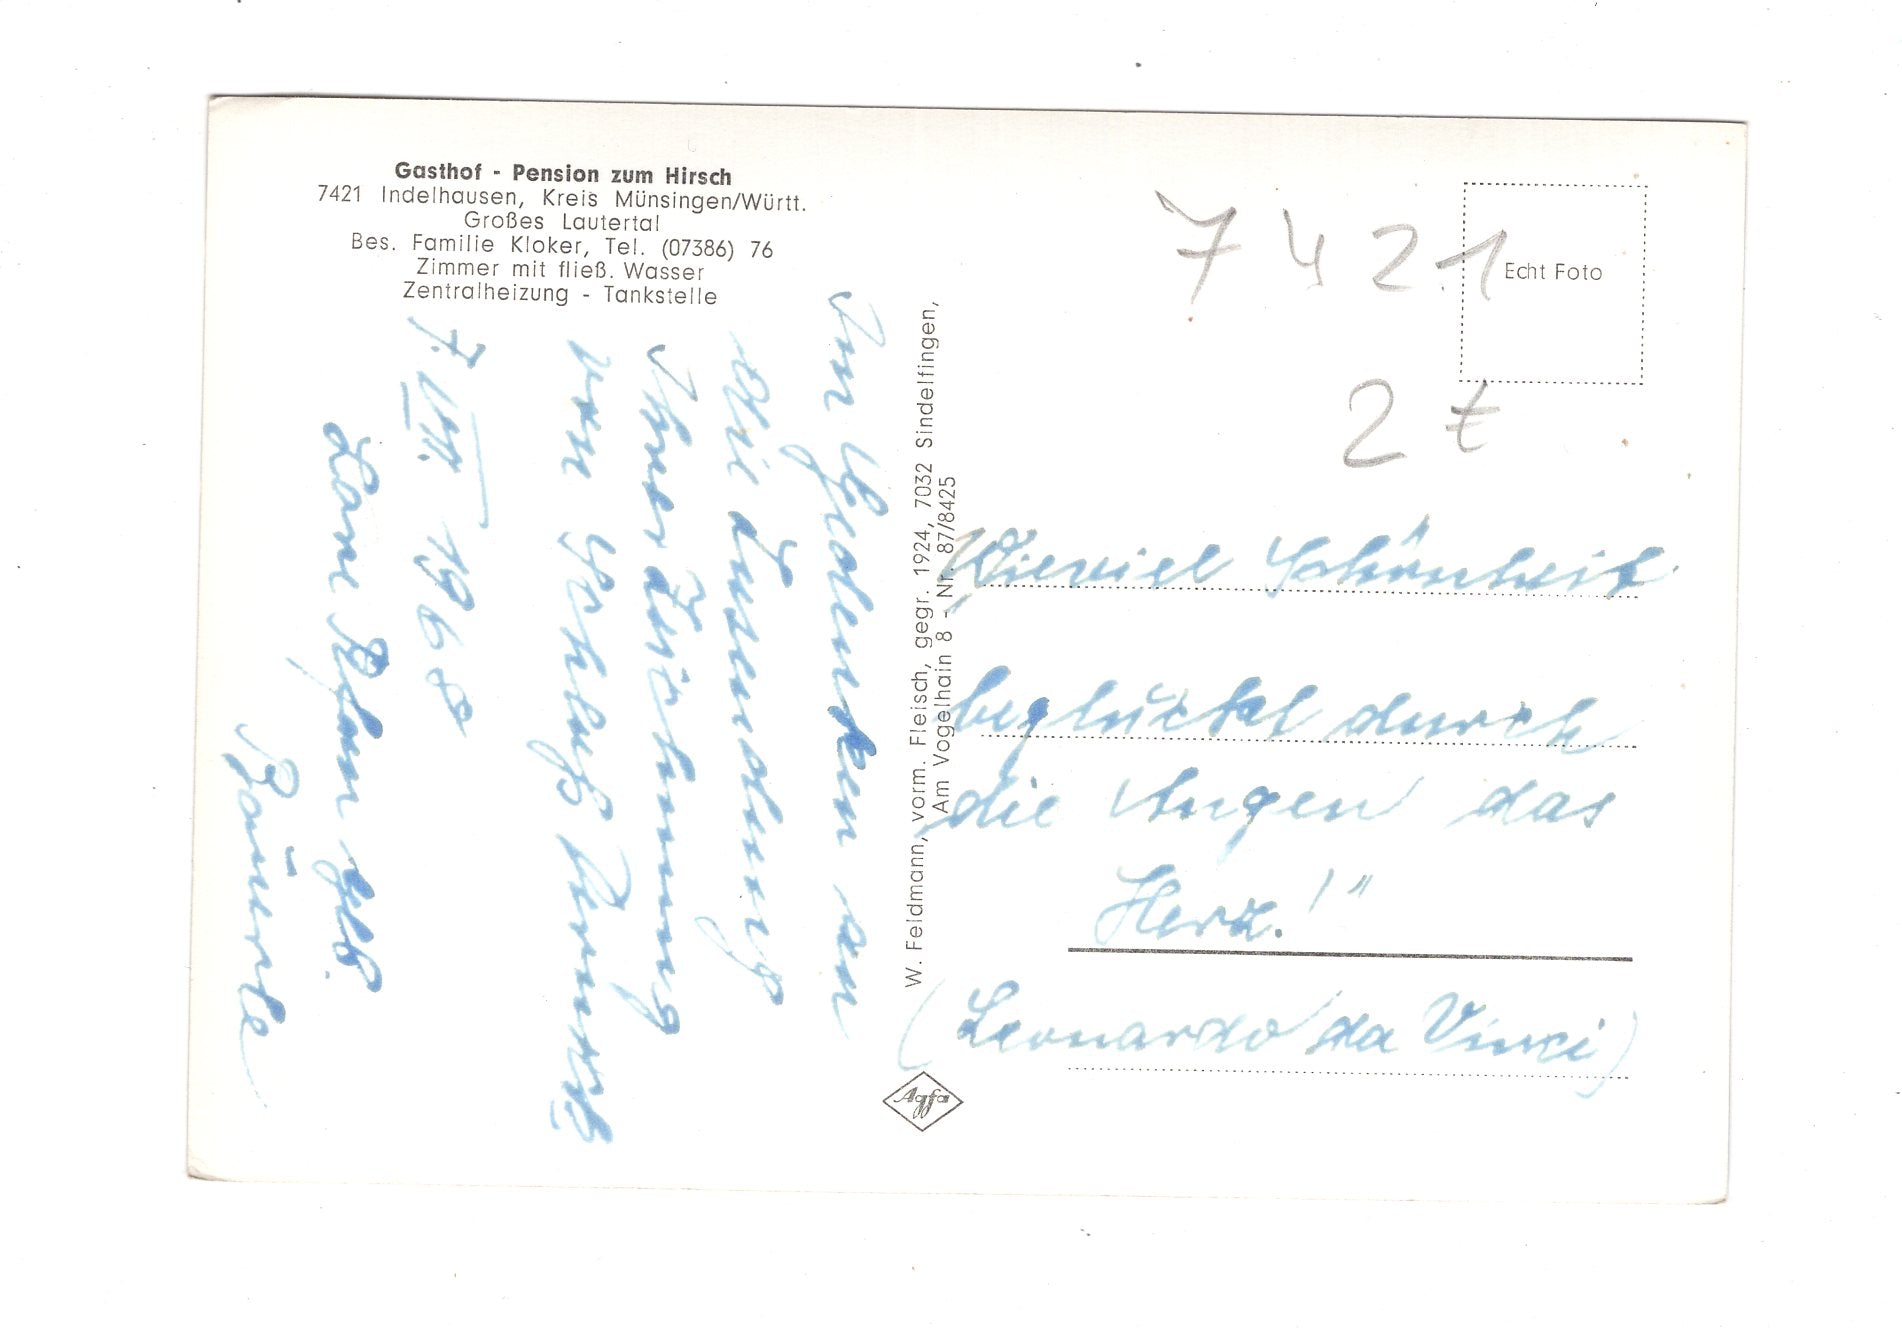 Gasthof - Pension zum Hirsch
7421 Indelhausen, Kreis Münsingen/Württ.
Großes Lautertal
Bes. Familie Kloker, Tel. (07386) 76
Zimmer mit fließ. Wasser
Zentralheizung - Tankstelle
Zum Gedenken an
die Zusendung
Ihrer Zeichnung
von Schloß
7. VII. 1968
geb.
Bäuerle
W. Feldmann, vorm. Fleisch, gegr. 1924, 7032 Sindelfingen,
Am Vogelhain 8 - Nr. 87/8425
Agfa
7421
Echt Foto
2 t
Wieviel Schönheit
beglückt durch
die Augen das
Herz!"
(Leonardo da Vinci)